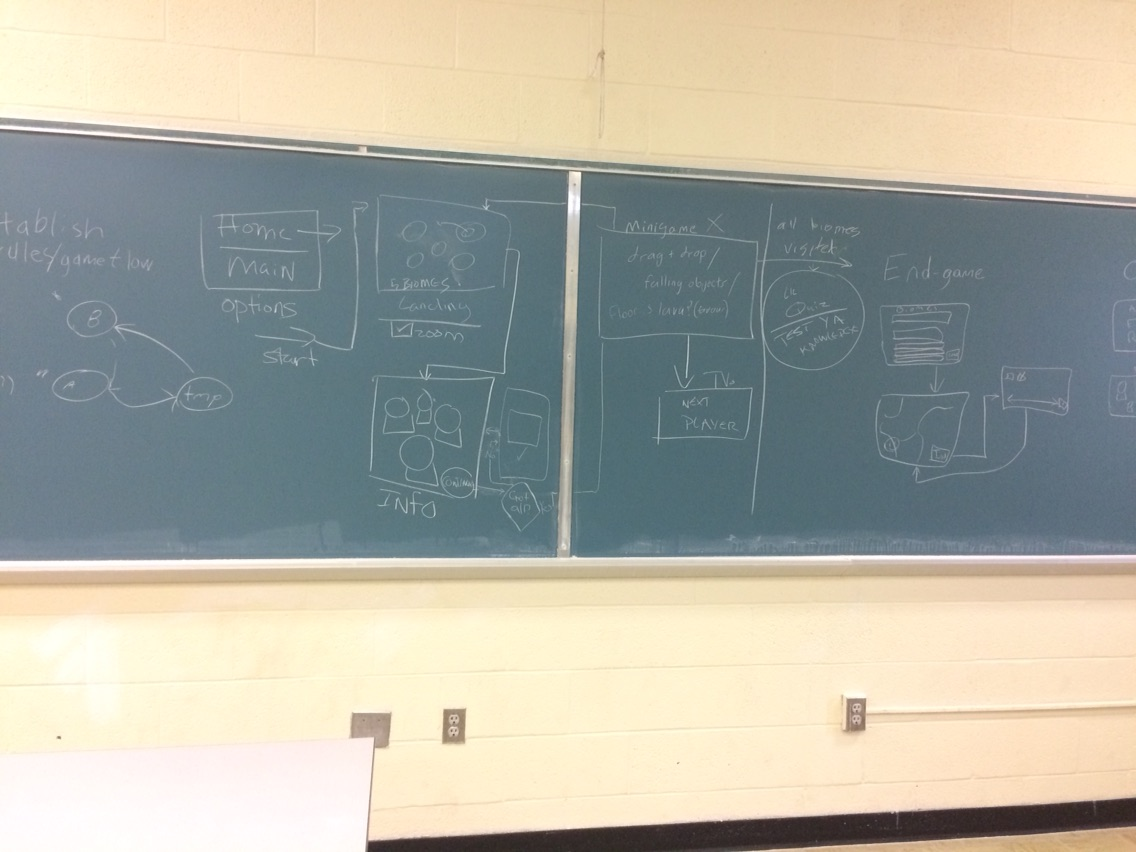 tablish
rules/gameflow
B
A
tmp
Home
MAIN
options
start
5 BIOMES
Landing
zoom
INFO
Minigame X
drag + drop/
falling objects/
Floor is lava?
NEXT
PLAYER
all biomes
visited
Quiz
TEST YA
KNOWLEDGE
End-game